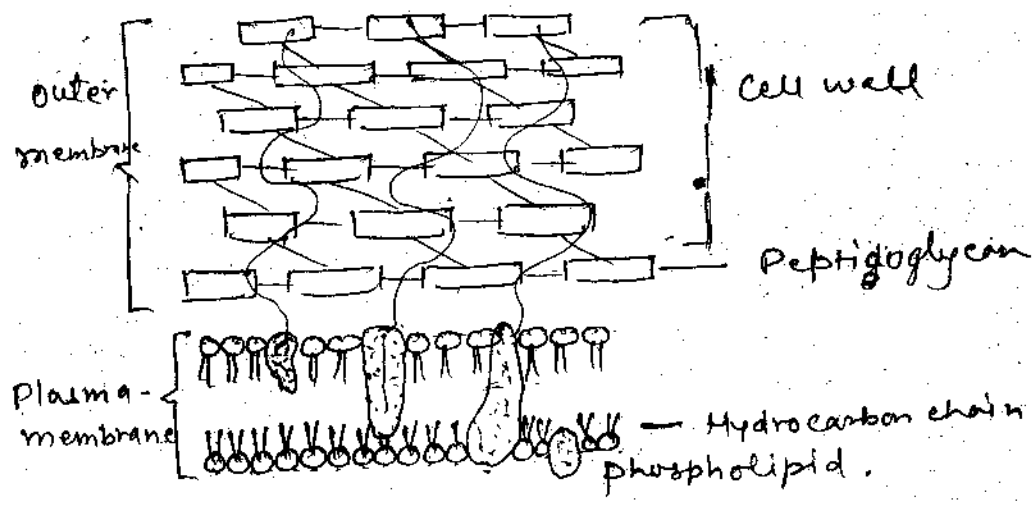 Outer
membrane
Cell wall
Peptidoglycan
Plasma-
membrane
Hydrocarbon chain
phospholipid.